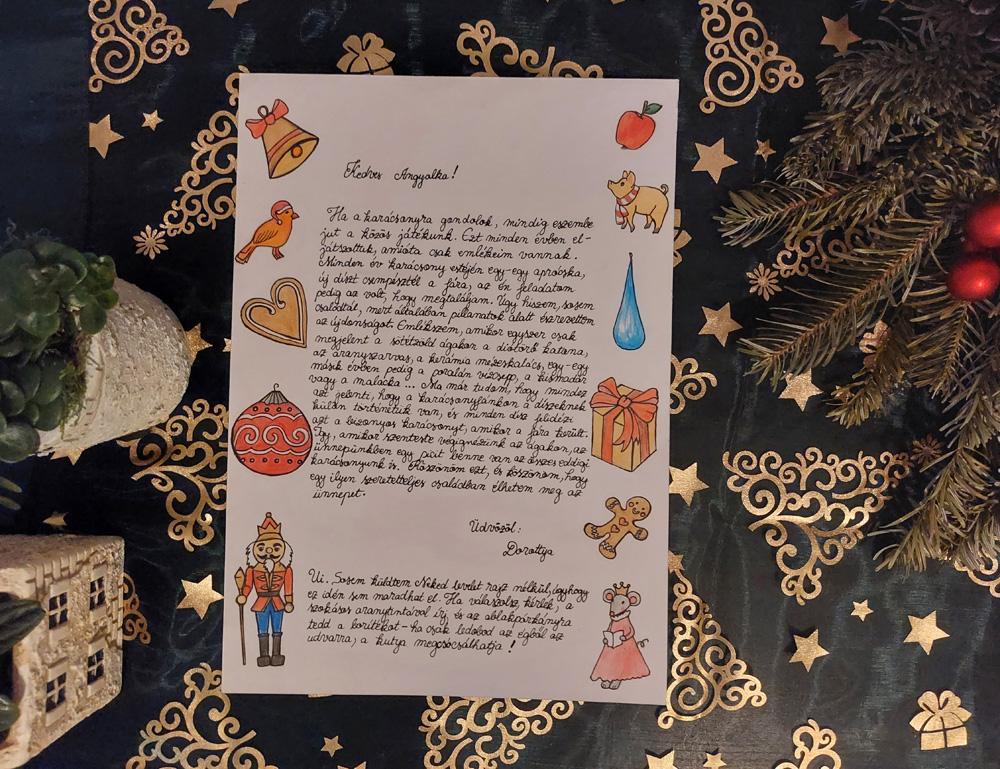 Kedves Angyalka!
Ha a karácsonyra gondolok, mindig eszembe
jut a közös játékunk. Ezt minden évben el-
játszottuk, amióta csak emlékeim vannak.
Minden év karácsony estéjén egy-egy apróbb,
új díszt csempésztél a fára, az én feladatom
pedig az volt, hogy megtaláljam. Úgy hiszem, sosem
csalódtál, mert általában pillanatok alatt észrevettem
az újdonságot. Emlékszem, amikor egyszer csak
megjelent a sötétzöld ágakon a diótörő katona,
az aranyszarvas, a kerámia mézeskalács, egy-egy
másik évben pedig a porcelán vízcsepp, a kismadár
vagy a malacka... Ma már tudom, hogy mindez
azt jelenti, hogy a karácsonyfánkon a díszeknek
külön történetük van, és minden dísz felidézi
azt a bizonyos karácsonyt, amikor a fára került.
Így, amikor szenteste végignézünk az ágakon, az
ünnepünkben egy picit benne van az összes eddigi
karácsonyunk is. Köszönöm ezt, és köszönöm, hogy
egy ilyen szeretetteljes családban élhetem meg az
ünnepet.
Üdvözöl:
Dorottya
Ui. Sosem küldtem Neked levelet rajz nélkül, úgyhogy
ez idén sem maradhat el. Ha válaszolsz, kérlek, a
szokásos aranytintával írj, és az ablakpárkányra
tedd a borítékot - ha csak ledobod az égből az
udvarra, a kutya megcsócsálhatja!